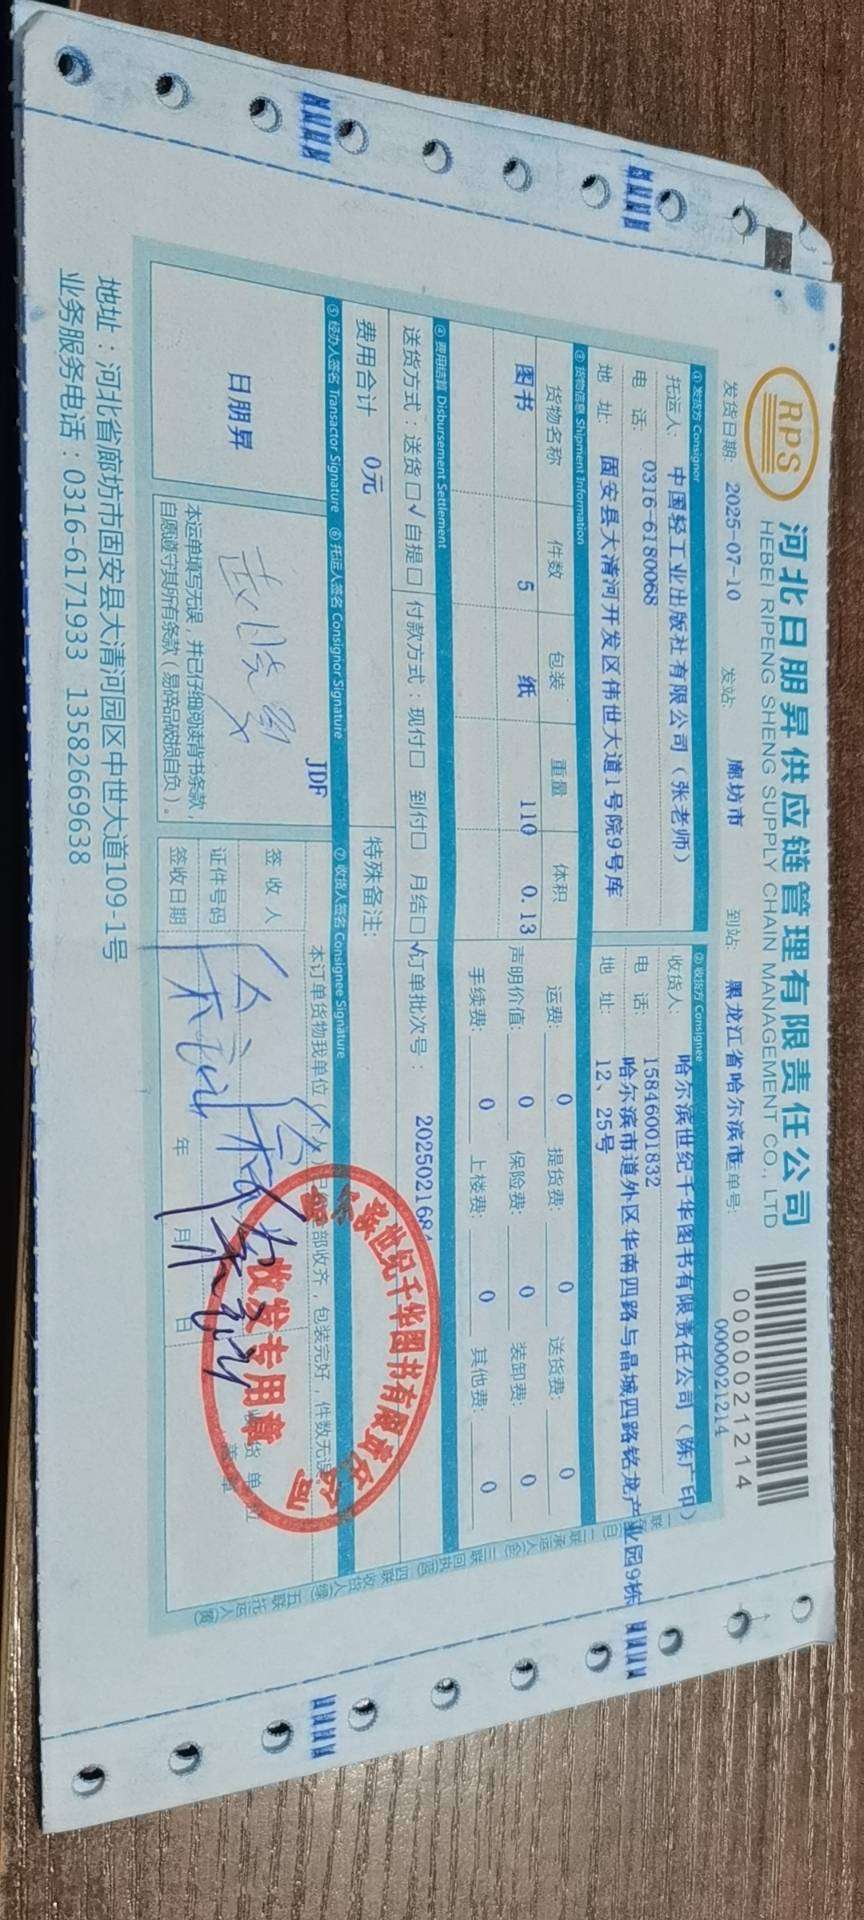 RPS
河北日朋昇供应链管理有限责任公司
HEBEI RIPENG SHENG SUPPLY CHAIN MANAGEMENT CO., LTD
0000021214
发货日期: 2025-07-10 发站: 廊坊市 到站: 黑龙江省哈尔滨市 运单号: 0000021214
① 发货方 Consignor
托运人: 中国轻工业出版社有限公司（张老师）
电 话: 0316-6180068
地 址: 固安县大清河开发区伟世大道1号院9号库
② 收货方 Consignee
收货人: 哈尔滨世纪千华图书有限责任公司（陈广印）
电 话: 15846001832
地 址: 哈尔滨市道外区华南四路与晶城四路铭龙产业园9栋
12、25号
③ 货物信息 Shipment Information
货物名称 件数 包装 重量 体积
图书 5 纸 110 0.13
运费: 0 提货费: 0 送货费: 0
声明价值: 0 保险费: 0 装卸费: 0
手续费: 0 上楼费: 0 其他费: 0
④ 费用结算 Disbursement Settlement
送货方式：送货□√ 自提□ 付款方式：现付□ 到付□ 月结□√ 订单批次号： 202502168
费用合计 0元 特殊备注:
⑤ 经办人签名 Transactor Signature ⑥ 托运人签名 Consignor Signature ⑦ 收货人签名 Consignee Signature
日朋昇
JDF
本运单填写无误，并已仔细阅读背书条款，
自愿遵守其所有条款（易碎品破损自负）。
本订单货物我单位（个人）已全部收齐，包装完好，件数无误
签 收 人
证件号码
签收日期 年 月 日
收货单位
盖章
世纪千华图书有限责任公司
收发专用章
二联承运人
三联回执
四联收货人
五联托运人
地址：河北省廊坊市固安县大清河园区中世大道109-1号
业务服务电话：0316-6171933 13582669638